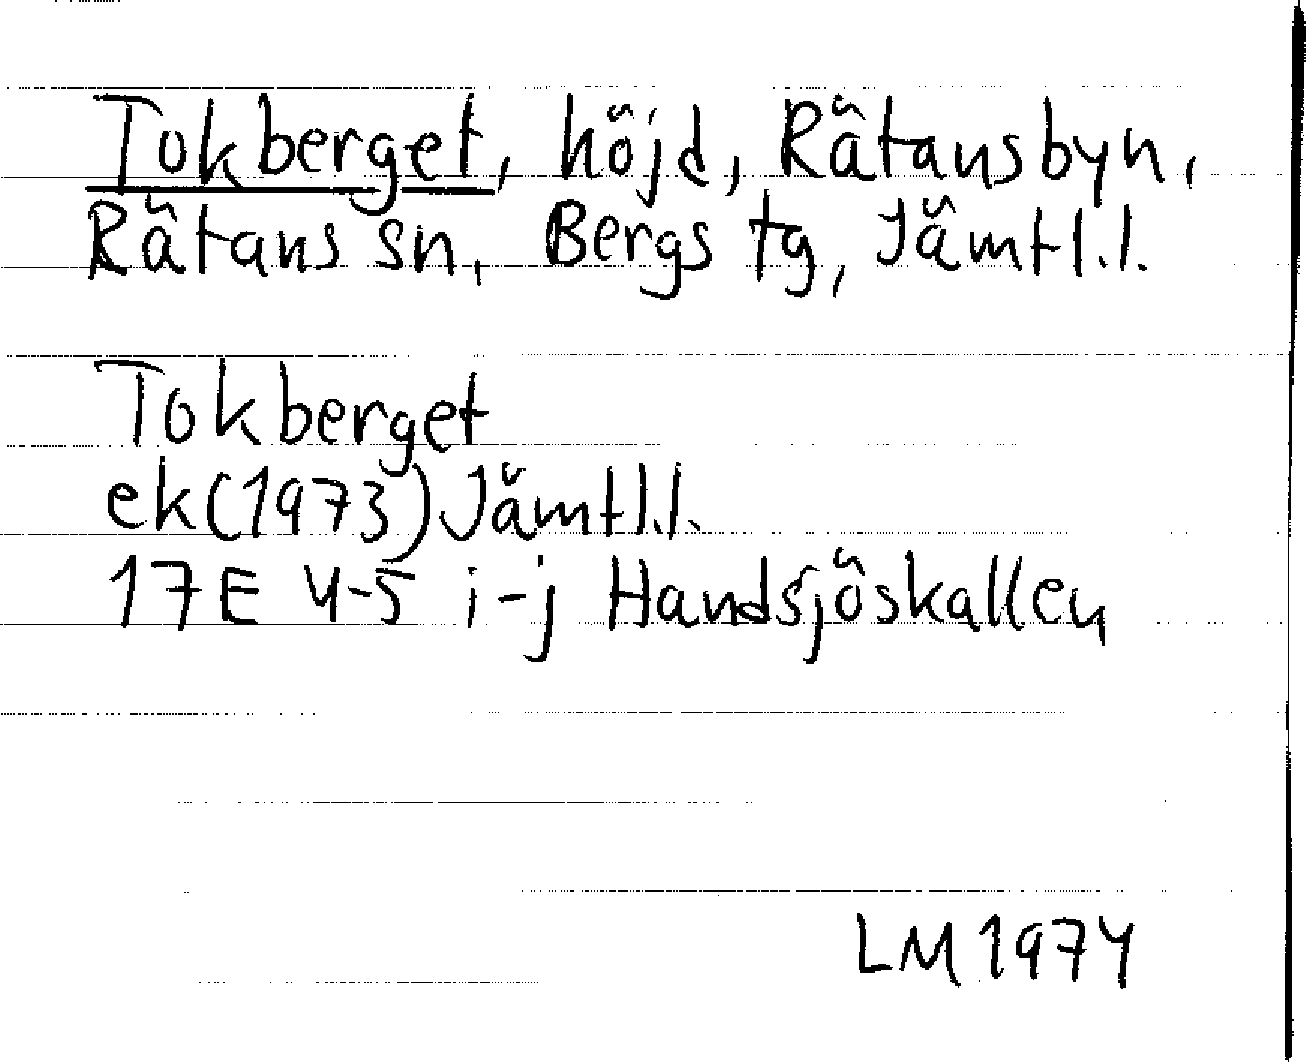 Tokberget, höjd, Rätansbyn,
Rätans sn, Bergs tg, Jämtl.l.
Tokberget
ek(1973) Jämtl.l.
17E 4-5 i-j Handsjöskallen
LM 1974